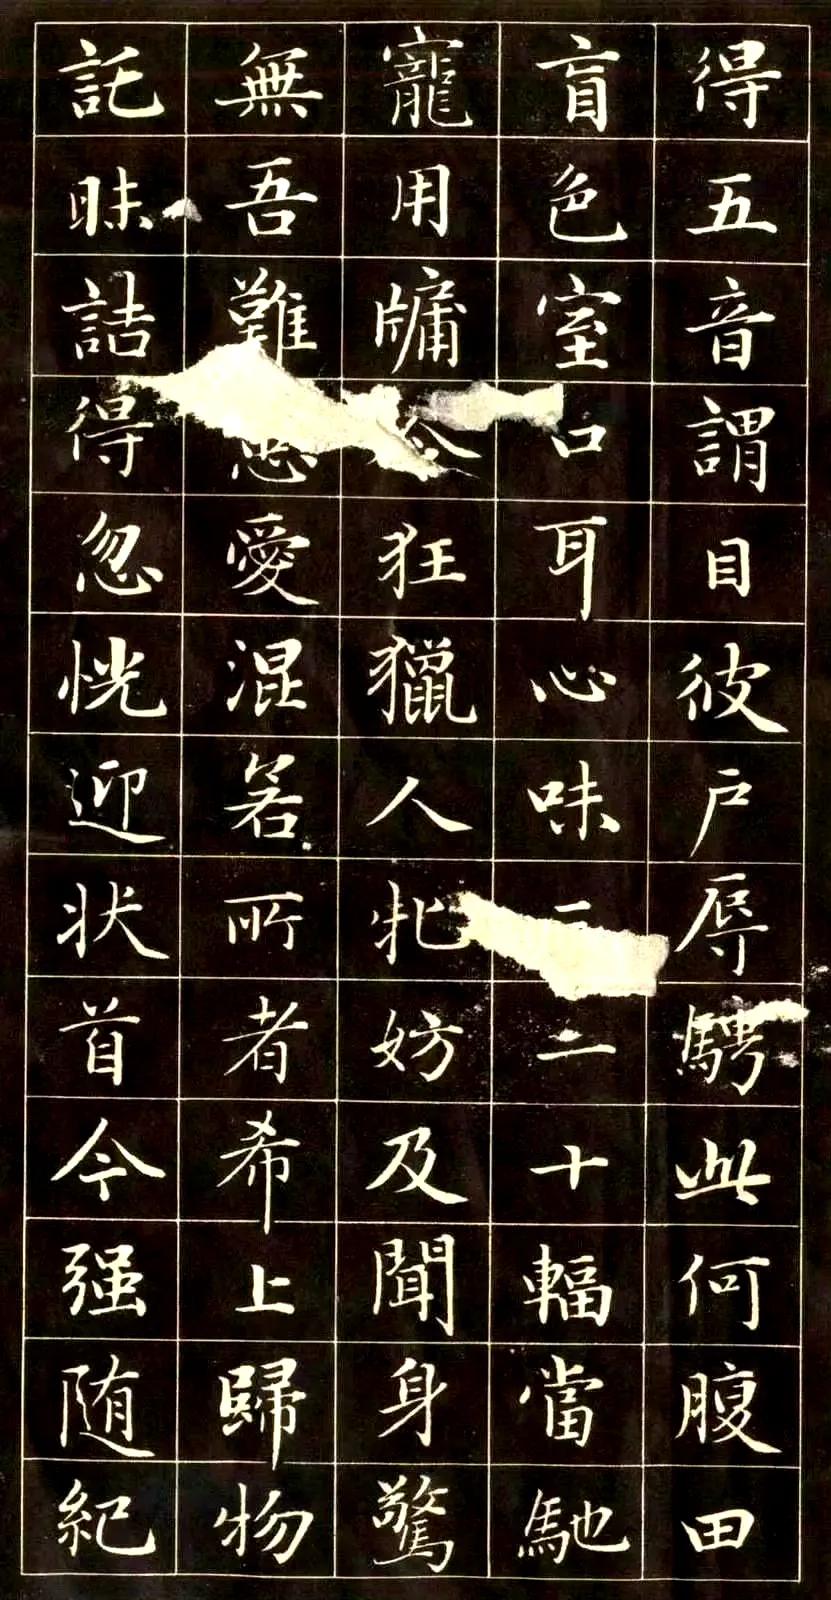 得五音謂目彼戶辱騁此何腹田
盲色室口耳心味二十輻當馳
寵用牗狂獵人牝妨及聞身驚
無吾難愛混若所者希上歸物
託昧詰得忽恍迎状首今强随紀